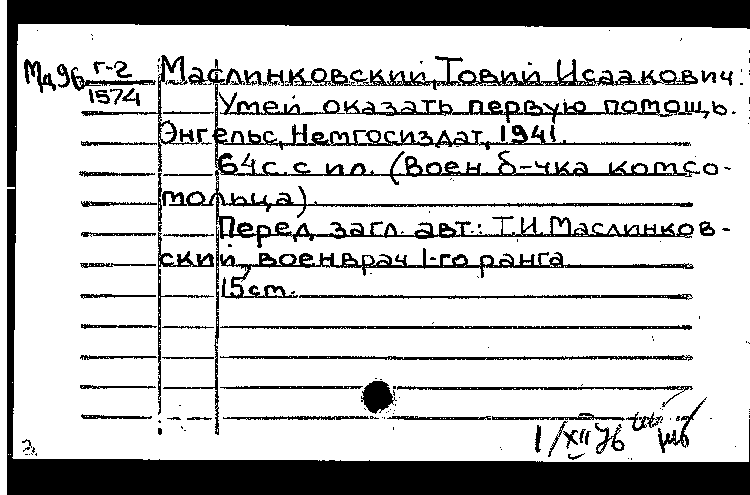 Мд96 г-2 Маслинковский, Товий Исаакович.
1574 Умей оказать первую помощь.
Энгельс, Немгосиздат, 1941.
64с. с ил. (Воен. б-чка комсо-
мольца).
Перед загл. авт.: Т.И. Маслинков-
ский, военврач 1-го ранга
15 см.
2.
1/XII 76